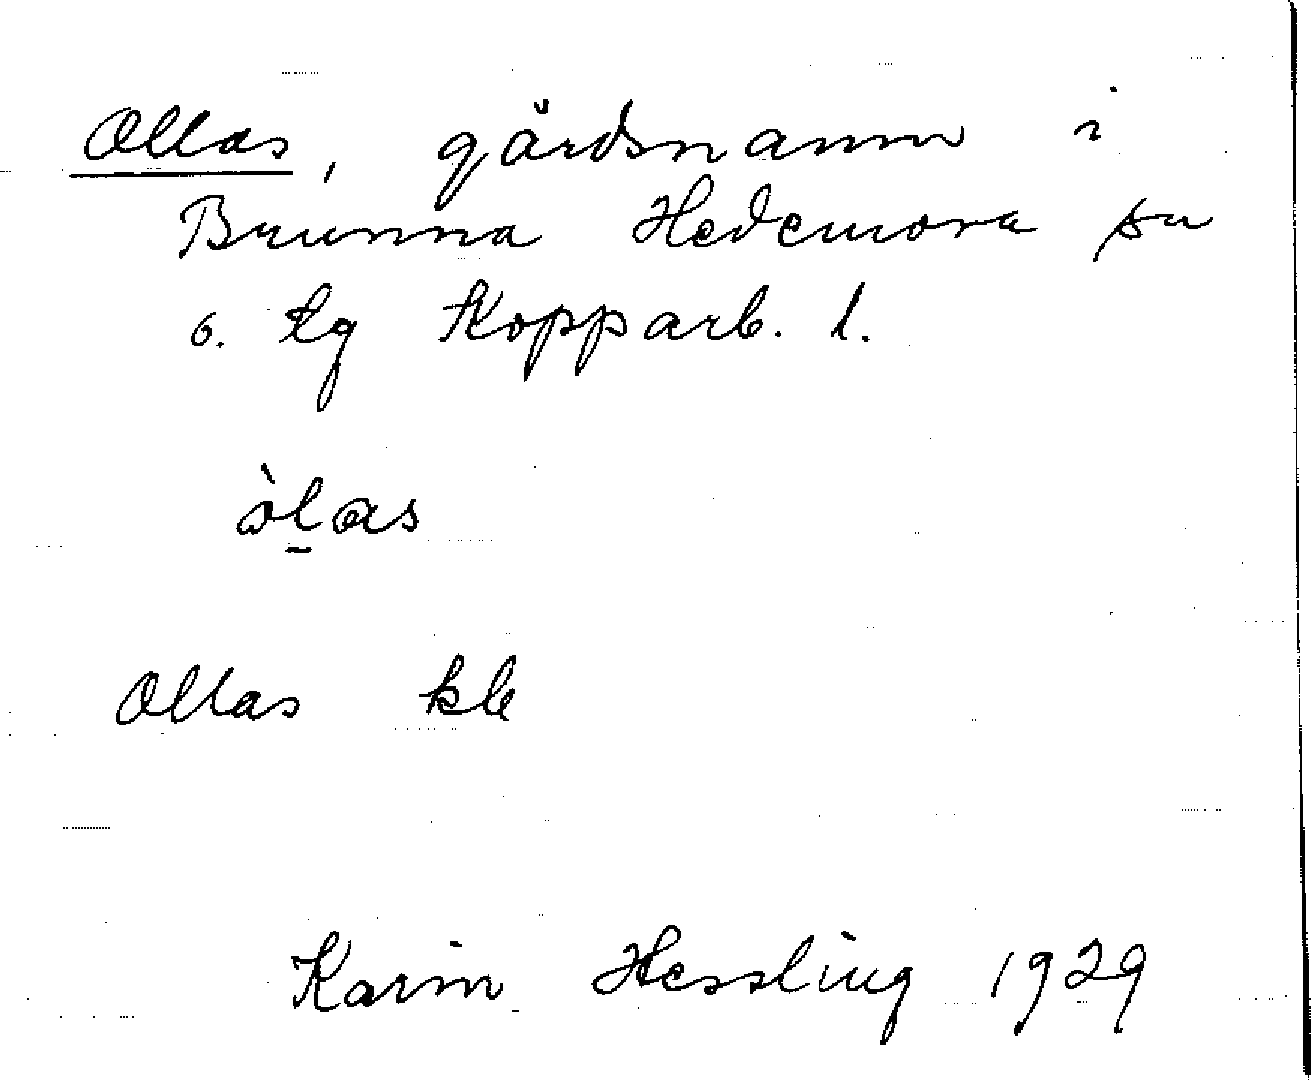 Ollas, gårdsnamn i
Brunna Hedemora sn
o. tg Kopparb. l.
òl̠as
Ollas kb
Karin Hessling 1929